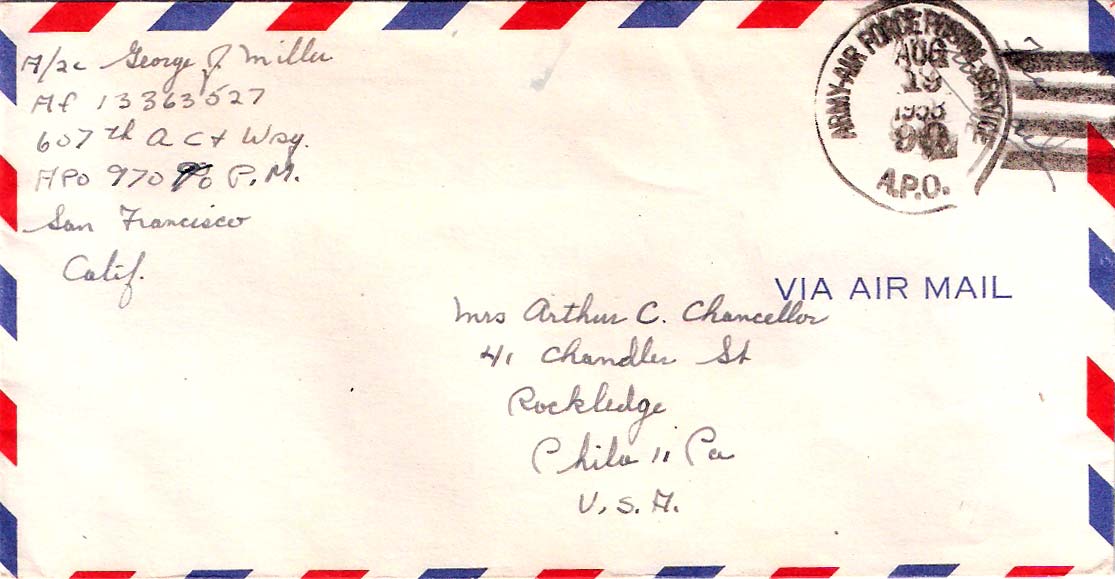 A/2c George J. Miller
Af 13363527
607th A C + W Sq.
APO 970 % P.M.
San Francisco
Calif.
ARMY-AIR FORCE POSTAL SERVICE
AUG
19
A.P.O.
VIA AIR MAIL
Mrs Arthur C. Chancellor
41 Chandler St
Rockledge
Phila 11 Pa
U.S.A.